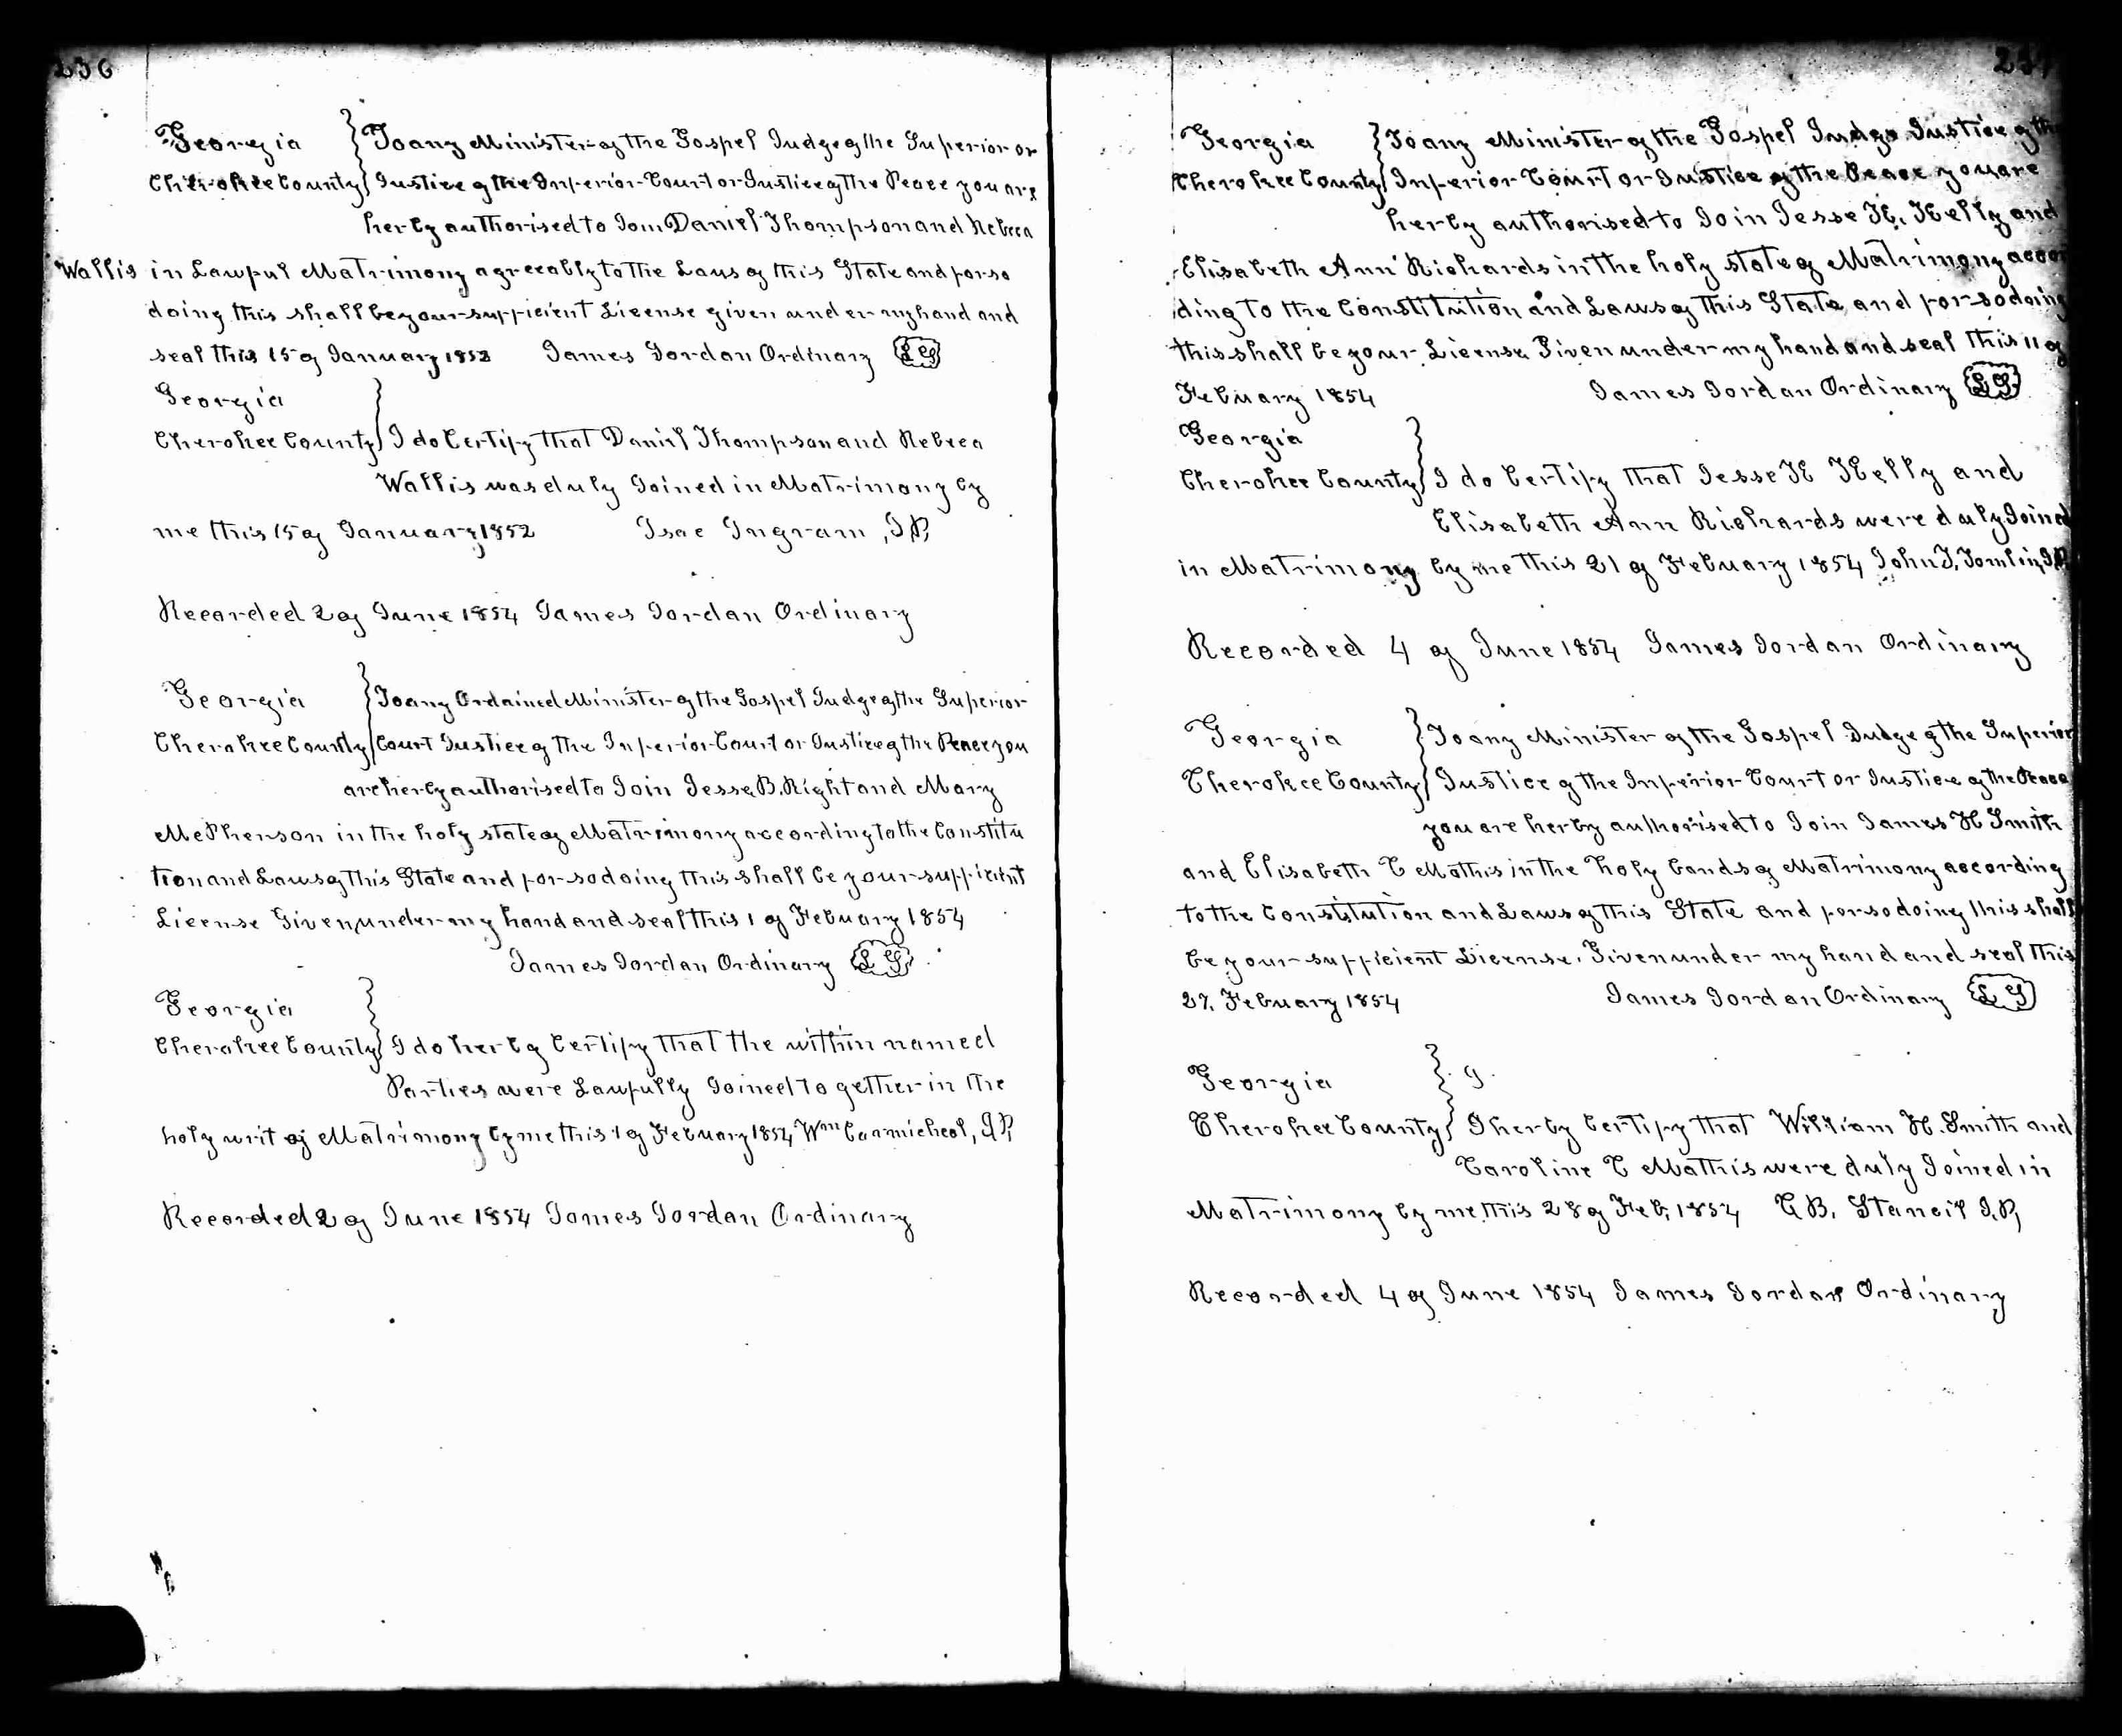 236
Georgia } To any Minister of the Gospel Judge of the Superior or
Cherokee County } Justice of the Inferior Court or Justice of the Peace you are
herby authorised to Join Daniel Thompson and Rebeca
Wallis in Lawful Matrimony agreeably to the Laws of this State and for so
doing this shall be your sufficient License given under my hand and
seal this 15 of January 1852 James Jordan Ordinary LS
Georgia
Cherokee County } I do Certify that Daniel Thompson and Rebeca
Wallis was duly Joined in Matrimony by
me this 15 of January 1852 Isac Ingram, J.P,
Recorded 2 of June 1854 James Jordan Ordinary
Georgia } To any Ordained Minister of the Gospel Judge of the Superior
Cherokee County } Court Justice of the Inferior Court or Justice of the Peace you
are herby authorised to Join Jesse B. Right and Mary
McPherson in the holy state of Matrimony according to the Constitu
tion and Laws of this State and for so doing this shall be your sufficient
License Given under my hand and seal this 1 of Febuary 1854
James Jordan Ordinary LS
Georgia
Cherokee County } I do herby Certify that the within named
Parties were Lawfully Joined to gether in the
holy writ of Matrimony by me this 1 of Febuary 1854 Wm Carmicheal, J.P,
Recorded 2 of June 1854 James Jordan Ordinary
Georgia } To any Minister of the Gospel Judge Justice of the
Cherokee County } Inferior Court or Justice of the Peace you are
herby authorised to Join Jesse K. Kelly and
Elisabeth Ann Richards in the holy state of Matrimony accor
ding to the Constitution and Laws of this State and for so doing
this shall be your License Given under my hand and seal this 11 of
Febuary 1854 James Jordan Ordinary LS
Georgia
Cherokee County } I do Certify that Jesse K Kelly and
Elisabeth Ann Richards were duly Joined
in Matrimony by me this 21 of Febuary 1854 John J, Tomlin, J.P.
Recorded 4 of June 1854 James Jordan Ordinary
Georgia } To any Minister of the Gospel Judge of the Superior
Cherokee County } Justice of the Inferior Court or Justice of the Peace
you are herby authorised to Join James H Smith
and Elisabeth C Mathis in the holy bands of Matrimony according
to the Constitution and Laws of this State and for so doing this shall
be your sufficient License, Given under my hand and seal this
27, Febuary 1854 James Jordan Ordinary LS
Georgia
Cherokee County } I herby Certify that William H. Smith and
Caroline C Mathis were duly Joined in
Matrimony by me this 28 of Feb, 1854 G B, Stancil J.P,
Recorded 4 of June 1854 James Jordan Ordinary